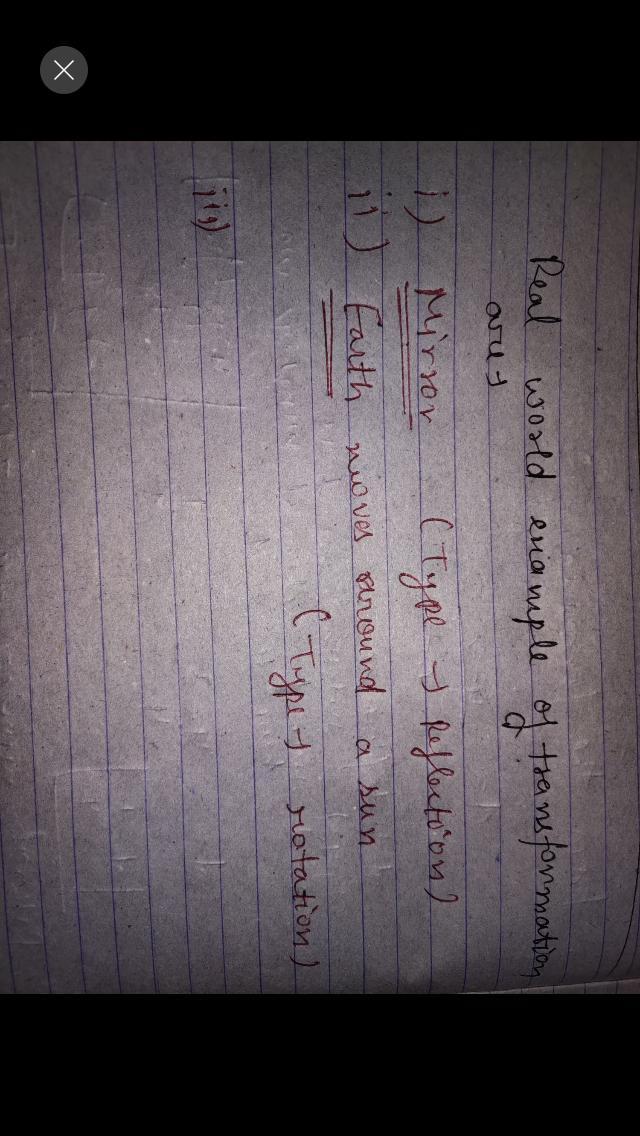 Real world example of transformation
are →
i) Mirror (Type → Reflection)
ii) Earth moves around a sun
(Type → rotation)
iii)